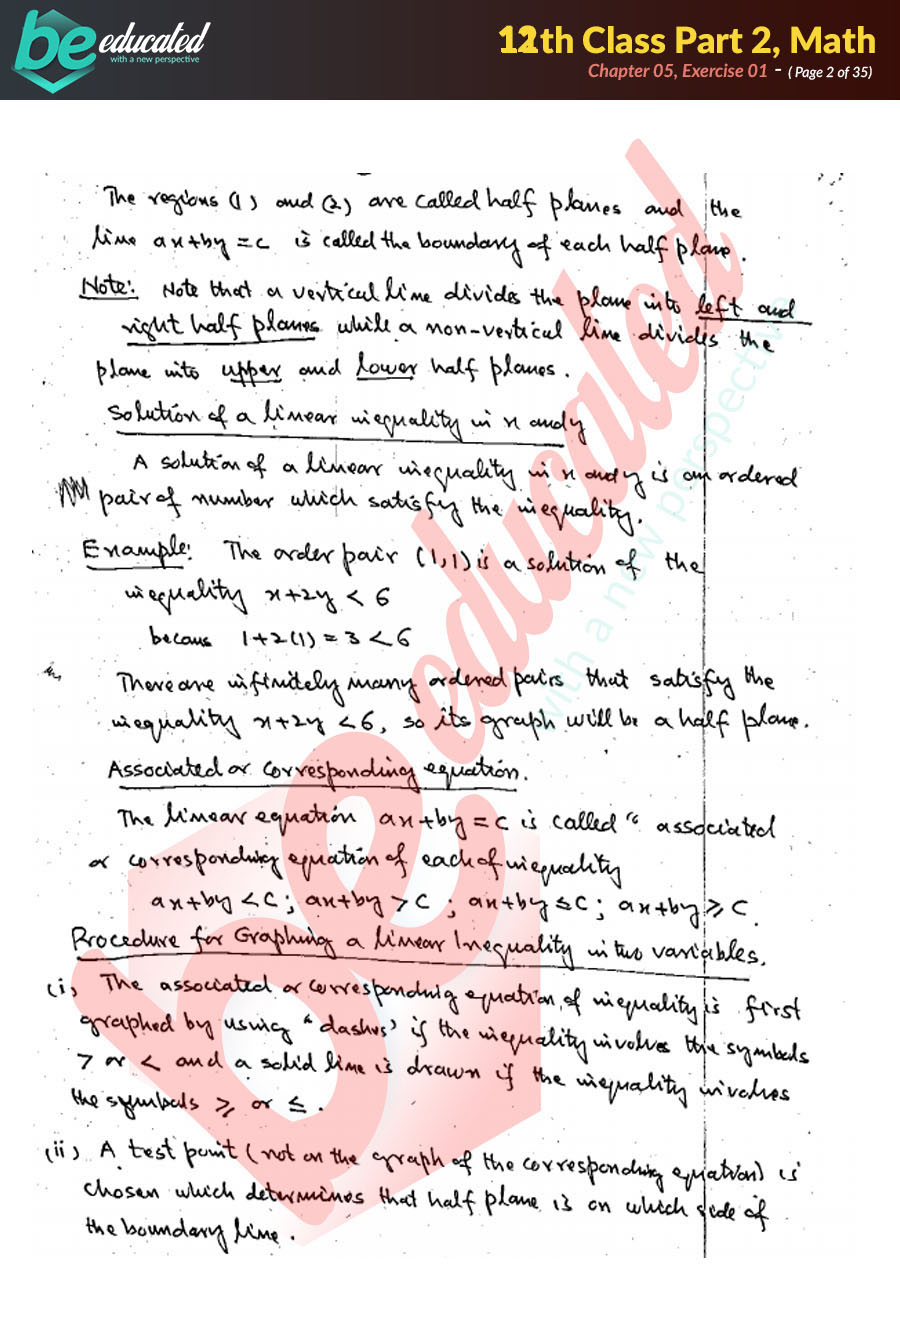 be educated
with a new perspective
12th Class Part 2, Math
Chapter 05, Exercise 01 - ( Page 2 of 35)
The regions (1) and (2) are called half planes and the
line ax+by = c is called the boundary of each half plane.
Note: Note that a vertical line divides the plane into left and
right half planes while a non-vertical line divides the
plane into upper and lower half planes.
Solution of a linear inequality in x and y
A solution of a linear inequality in x and y is an ordered
pair of number which satisfy the inequality.
Example: The order pair (1,1) is a solution of the
inequality x+2y < 6
becaus 1+2(1) = 3 < 6
There are infinitely many ordered pairs that satisfy the
inequality x+2y < 6, so its graph will be a half plane.
Associated or corresponding equation.
The linear equation ax+by = c is called " associated
or corresponding equation of each of inequality
ax+by < c ; ax+by > c ; ax+by ≤ c ; ax+by ≥ c.
Procedure for Graphing a linear Inequality in two variables.
(i) The associated or corresponding equation of inequality is first
graphed by using "dashes" if the inequality involves the symbols
> or < and a solid line is drawn if the inequality involves
the symbols ≥ or ≤ .
(ii) A test point (not on the graph of the corresponding equation) is
chosen which determines that half plane is on which side of
the boundary line.
be educated
with a new perspective